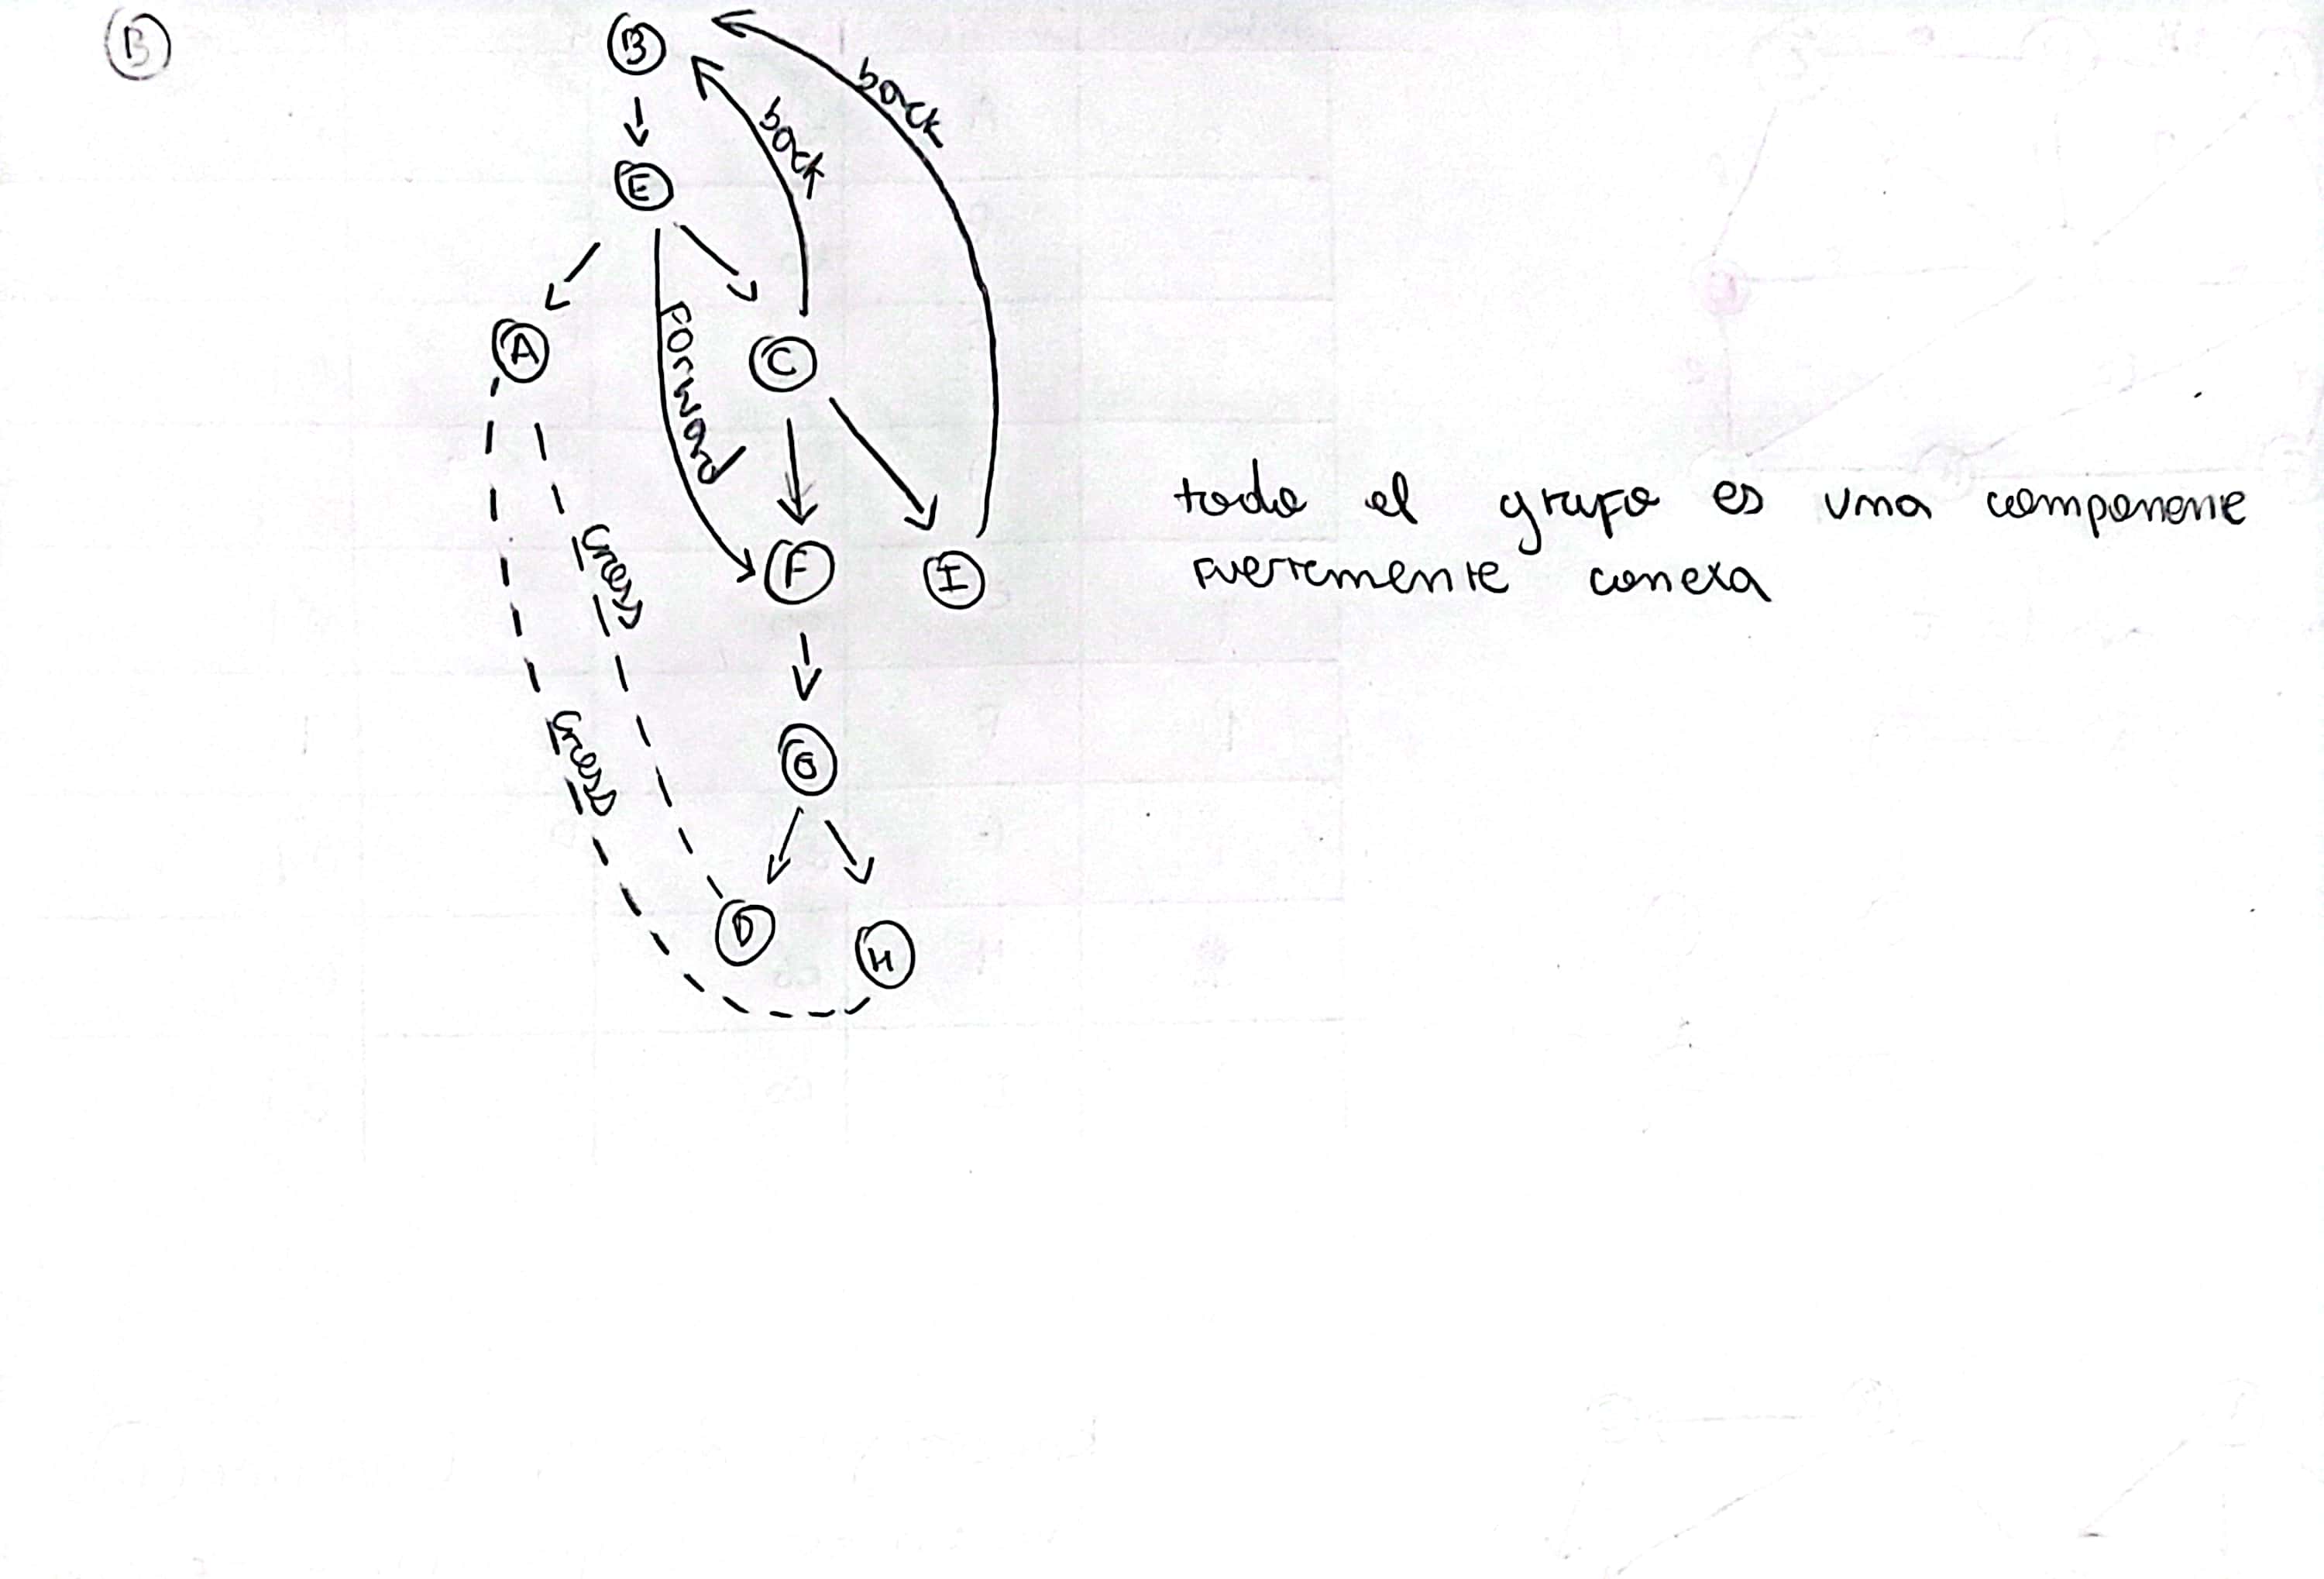 B
B
back
back
E
A
forward
C
F
I
cross
cross
G
D
H
todo el grafo es una componente
fuertemente conexa